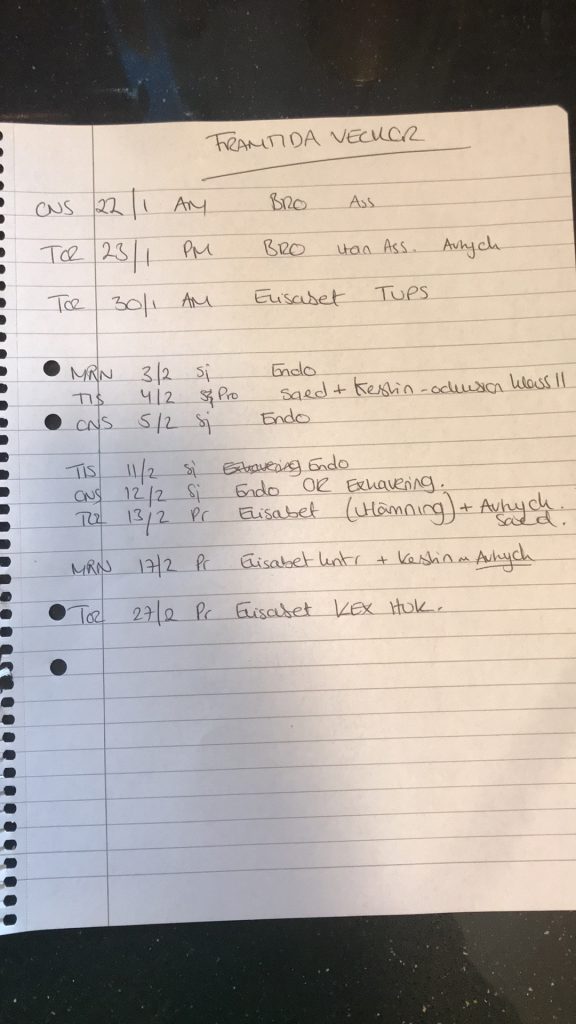 FRAMTIDA VECKOR
ONS 22/1 AM BRO Ass
TOR 23/1 PM BRO utan Ass. Avtryck
TOR 30/1 AM Elisabet TUPS
MÅN 3/2 Sj Endo
TIS 4/2 Pro Saed + Kerstin - Klass II
ONS 5/2 Sj Endo
TIS 11/2 Sj Endo
ONS 12/2 Sj Endo OR Exkavering.
TOR 13/2 Pr Elisabet (Utlämning) + Avtryck.
Saed.
MÅN 17/2 Pr Elisabet + Kerstin Avtryck
TOR 27/2 Pr Elisabet KEX HUK.